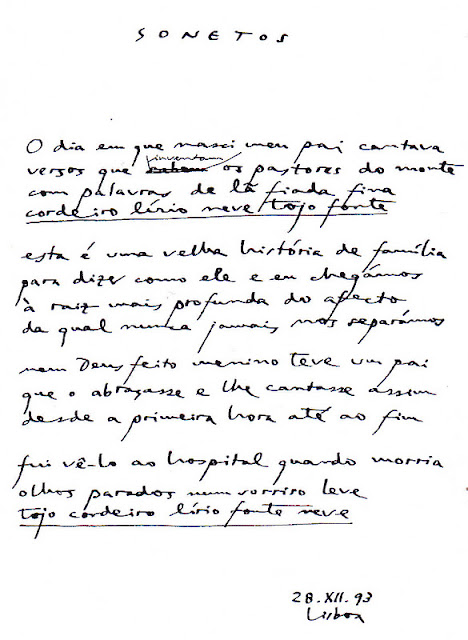 SONETOS
O dia em que nasci meu pai cantava
inventam
versos que sabem os pastores do monte
com palavras de lã fiada fina
cordeiro lírio neve tojo fonte
esta é uma velha história de família
para dizer como ele e eu chegámos
à raiz mais profunda do afecto
da qual nunca jamais nos separámos
nem Deus feito menino teve um pai
que o abraçasse e lhe cantasse assim
desde a primeira hora até ao fim
fui vê-lo ao hospital quando morria
olhos parados num sorriso leve
tojo cordeiro lírio fonte neve
28.XII.93
Lisboa